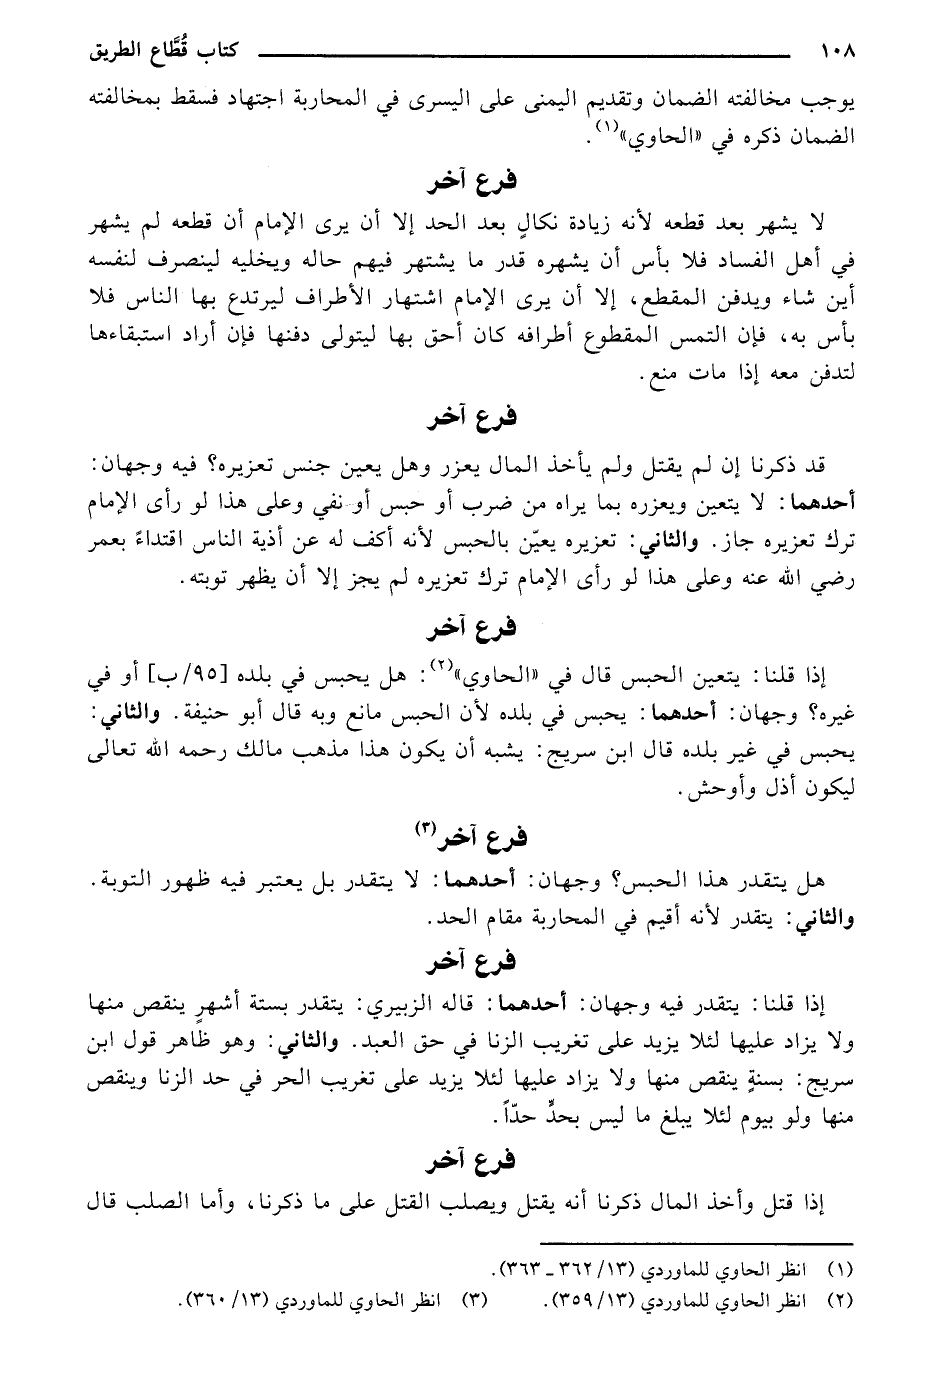 ١٠٨ كتاب قُطَّاع الطريق
يوجب مخالفته الضمان وتقديم اليمنى على اليسرى في المحاربة اجتهاد فسقط بمخالفته
الضمان ذكره في «الحاوي»(١).
فرع آخر
لا يشهر بعد قطعه لأنه زيادة نكالٍ بعد الحد إلا أن يرى الإمام أن قطعه لم يشهر
في أهل الفساد فلا بأس أن يشهره قدر ما يشتهر فيهم حاله ويخليه لينصرف لنفسه
أين شاء ويدفن المقطع، إلا أن يرى الإمام اشتهار الأطراف ليرتدع بها الناس فلا
بأس به، فإن التمس المقطوع أطرافه كان أحق بها ليتولى دفنها فإن أراد استبقاءها
لتدفن معه إذا مات منع.
فرع آخر
قد ذكرنا إن لم يقتل ولم يأخذ المال يعزر وهل يعين جنس تعزيره؟ فيه وجهان:
أحدهما: لا يتعين ويعزره بما يراه من ضرب أو حبس أو نفي وعلى هذا لو رأى الإمام
ترك تعزيره جاز. والثاني: تعزيره يعيّن بالحبس لأنه أكف له عن أذية الناس اقتداءً بعمر
رضي الله عنه وعلى هذا لو رأى الإمام ترك تعزيره لم يجز إلا أن يظهر توبته.
فرع آخر
إذا قلنا: يتعين الحبس قال في «الحاوي»(٢): هل يحبس في بلده [٩٥/ب] أو في
غيره؟ وجهان: أحدهما: يحبس في بلده لأن الحبس مانع وبه قال أبو حنيفة. والثاني:
يحبس في غير بلده قال ابن سريج: يشبه أن يكون هذا مذهب مالك رحمه الله تعالى
ليكون أذل وأوحش.
فرع آخر(٣)
هل يتقدر هذا الحبس؟ وجهان: أحدهما: لا يتقدر بل يعتبر فيه ظهور التوبة.
والثاني: يتقدر لأنه أقيم في المحاربة مقام الحد.
فرع آخر
إذا قلنا: يتقدر فيه وجهان: أحدهما: قاله الزبيري: يتقدر بستة أشهرٍ ينقص منها
ولا يزاد عليها لئلا يزيد على تغريب الزنا في حق العبد. والثاني: وهو ظاهر قول ابن
سريج: بسنةٍ ينقص منها ولا يزاد عليها لئلا يزيد على تغريب الحر في حد الزنا وينقص
منها ولو بيوم لئلا يبلغ ما ليس بحدٍّ حدّاً.
فرع آخر
إذا قتل وأخذ المال ذكرنا أنه يقتل ويصلب القتل على ما ذكرنا، وأما الصلب قال
(١) انظر الحاوي للماوردي (١٣/ ٣٦٢ ـ ٣٦٣).
(٢) انظر الحاوي للماوردي (١٣/ ٣٥٩). (٣) انظر الحاوي للماوردي (١٣/ ٣٦٠).